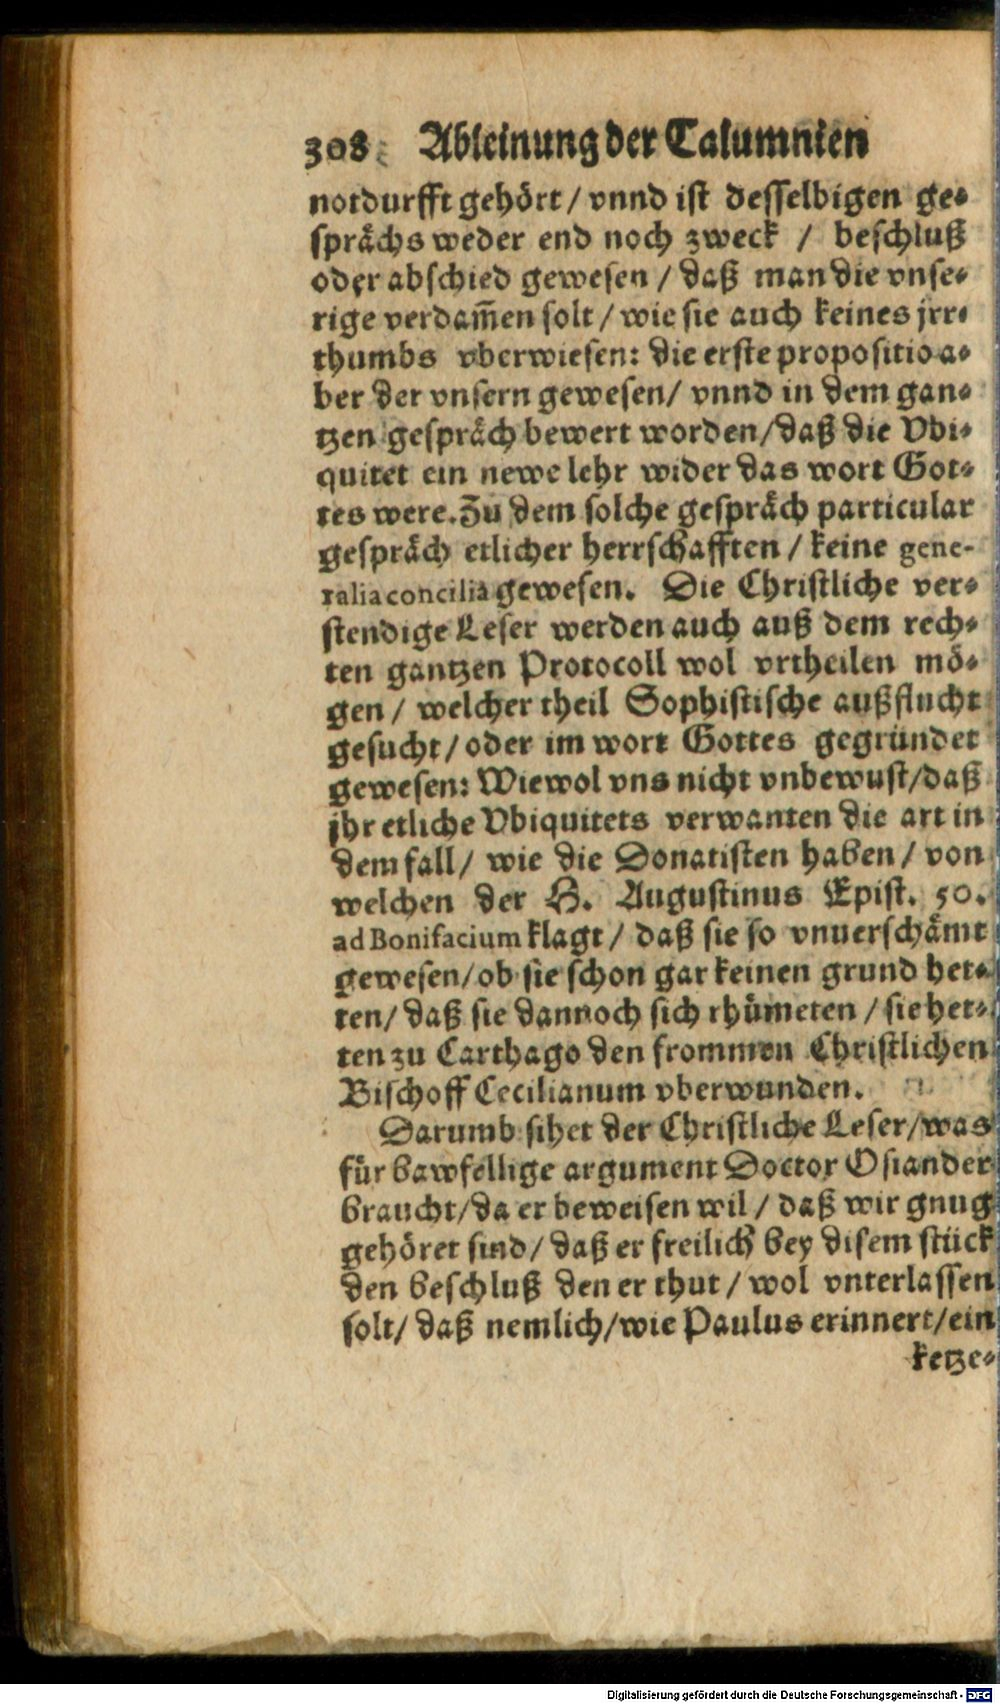 308 Ableinung der Calumnien
notdurfft gehört / vnnd ist desselbigen ge-
sprächs weder end noch zweck / beschluß
oder abschied gewesen / daß man die vnse-
rige verdam̄en solt / wie sie auch keines jrr-
thumbs vberwiesen: die erste propositio a-
ber der vnsern gewesen / vnnd in dem gan-
tzen gespräch bewert worden / daß die Vbi-
quitet ein newe lehr wider das wort Got-
tes were. Zu dem solche gespräch particular
gespräch etlicher herrschafften / keine gene-
ralia concilia gewesen. Die Christliche ver-
stendige Leser werden auch auß dem rech-
ten gantzen Protocoll wol vrtheilen mö-
gen / welcher theil Sophistische außflucht
gesucht / oder im wort Gottes gegründet
gewesen: Wiewol vns nicht vnbewust / daß
jhr etliche Vbiquitets verwanten die art in
dem fall / wie die Donatisten haben / von
welchen der H. Augustinus Epist. 50.
ad Bonifacium klagt / daß sie so vnuerschämt
gewesen / ob sie schon gar keinen grund het-
ten / daß sie dannoch sich rhümeten / sie het-
ten zu Carthago den frommen Christlichen
Bischoff Cecilianum vberwunden.
Darumb sihet der Christliche Leser / was
für bawfellige argument Doctor Osiander
braucht / da er beweisen wil / daß wir gnug
gehöret sind / daß er freilich bey disem stück
den beschluß den er thut / wol vnterlassen
solt / daß nemlich / wie Paulus erinnert / ein
ketze-
Digitalisierung gefördert durch die Deutsche Forschungsgemeinschaft - DFG